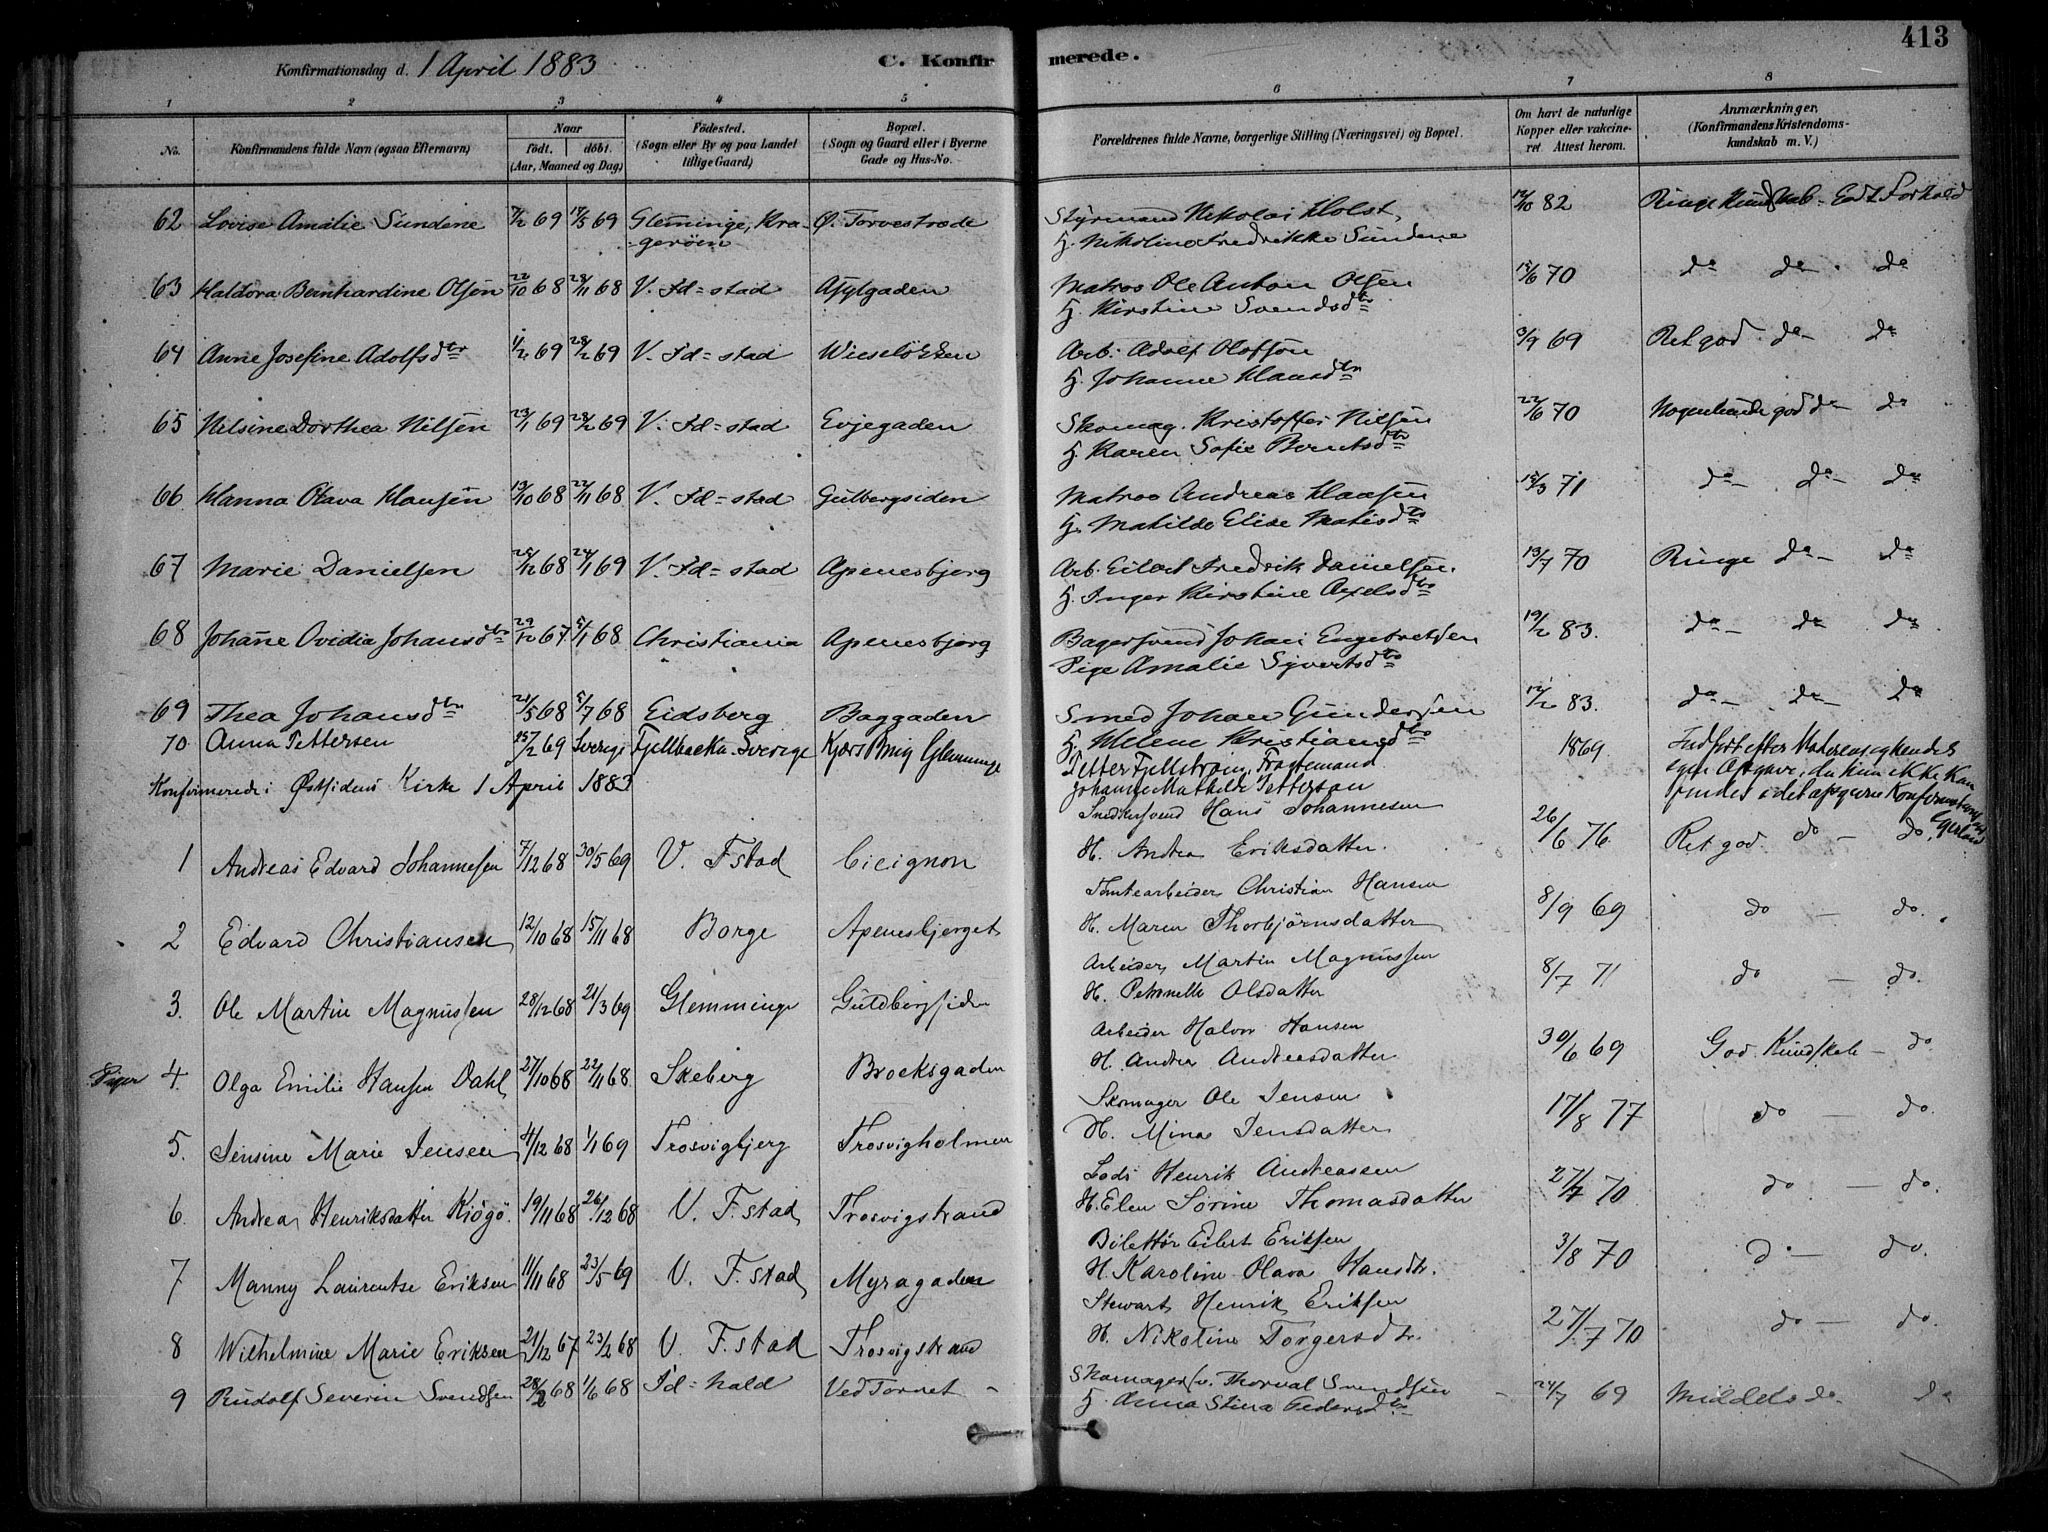 413
Konfirmationsdag d. 1 April 1883 C. Konfirmerede.
1 2 3 4 5 6 7 8
No. Konfirmandens fulde Navn (ogsaa Efternavn) Naar født. døbt. (Aar, Maaned og Dag) Fødested. (Sogn eller By og paa Landet tillige Gaard) Bopæl. (Sogn og Gaard eller i Byerne Gade og Hus-No. Forældrenes fulde Navne, borgerlige Stilling (Næringsvei) og Bopæl. Om havt de naturlige Kopper eller vakcineret Attest herom. Anmærkninger. (Konfirmandens Kristendomskundskab m. V.)
62 Lovise Amalie Sundene 7/2 69 17/5 69 Glemminge, Kra- Ø. Torvestræde Styrmand Nikolai Holst, 12/10 82 Ringe Kundskab - Godt Forhold
-gerøen H. Nikoline Fredrikke Sundene
63 Haldora Bernhardine Olsen 22/10 68 28/11 68 V. Fd=stad Asylgaden Matros Ole Anton Olsen 15/6 70 do do do
H. Kirstine Svendsdtr
64 Anne Josefine Adolfsdtr 1/2 69 28/2 69 V. Fd=stad Wieseløkken Arb. Adolf Olofson 3/9 69 Ret god do do
H. Johanne Hansdtr
65 Nilsine Dorthea Nilsen 23/1 69 28/2 69 V. Fd=stad Evjegaden Skomag. Kristoffer Nilsen 22/6 70 Nogenlunde god do do
H. Karen Sofie Berntsdtr
66 Hanna Olava Hansen 13/10 68 22/11 68 V. Fd=stad Gulbergsiden Matros Andreas Hansen 15/3 71 do do do
H. Matilde Elise Matisdtr
67 Marie Danielsen 25/12 68 24/1 69 V. Fd=stad Apenesbjerg Arb. Eilert Fredrik Danielsen. 13/7 70 Ringe do do
H. Inger Kirstine Axelsdtr
68 Johanne Ovidia Johansdtr 29/10 67 5/1 68 Christiania Apenesbjerg Bagersvend Johan Engebretsen 19/2 83. do do do
Pige Amalie Syvertsdtr
69 Thea Johansdtr 21/5 68 5/7 68 Eidsberg Baggaden Smed Johan Gundersen 12/2 83. do do do
H. Helene Kristiansdtr
70 Anna Pettersen 15/2 69 Sverige Fjellbacka Sverige Kjærs Brug Glemminge Petter Fjellstrøm, Fragtemand 1869 Indført efter Vedkommendes
Johanne Mathilde Petterson egen Opgave, da hun ikke kan
findes i det afgivne Konfirmations
Konfirmerede i Østsidens Kirke 1 April 1883
1 Andreas Edvard Johannesen 7/12 68 30/5 69 V. Fstad Cicignon Snedkersvend Hans Johannesen 26/6 76 Ret god. do - do
H. Andrea Eriksdatter.
2 Edvard Christiansen 12/10 68 15/11 68 Borge Apenesbjerget Tomtearbeider Christian Hansen 8/9 69 do - do.
H. Maren Thorbjørnsdatter
3. Ole Martin Magnussen 28/12 68 21/3 69 Glemminge Guldbergsiden Arbeider Martin Magnussen 8/7 71 do - do.
H. Petronelle Olsdatter
Piger 4. Olga Emilie Hansen Dahl 27/10 68 22/11 68 Skeberg Brocksgaden Arbeider Halvor Hansen 30/6 69 God Kundskab - do
H. Andrea Andreasdatter
5. Jensine Marie Jensen 4/12 68 1/1 69 Trosvigbjerg Trosvigholmen Skomager Ole Jensen 17/8 77 do - do.
H. Mina Jensdatter
6. Andrea Henriksdatter Kiøgø. 19/11 68 26/12 68 V. F.stad Trosvigstrand Lods Henrik Andreassen 27/7 70 do - do.
H. Elen Sørine Thomasdatter
7 Manny Laurentse Eriksen 11/11 68 23/5 69 V. F.stad Myragaden Biletthr Eilert Eriksen 3/8 70 do - do.
H. Karoline Olava Hansdtr.
8 Wilhelmine Marie Eriksen 21/12 67 23/2 68 V. F.stad Trosvigstrand Stewart Henrik Eriksen 27/7 70 do - do.
H. Nikoline Torgersdtr.
9 Rudolf Severin Svendsen 28/2 68 1/6 68 Fd=hald Ved Torvet - Skomagersv. Thorval Svendsen 24/7 69 Middels do do
H. Anna Stina Pedersdtr